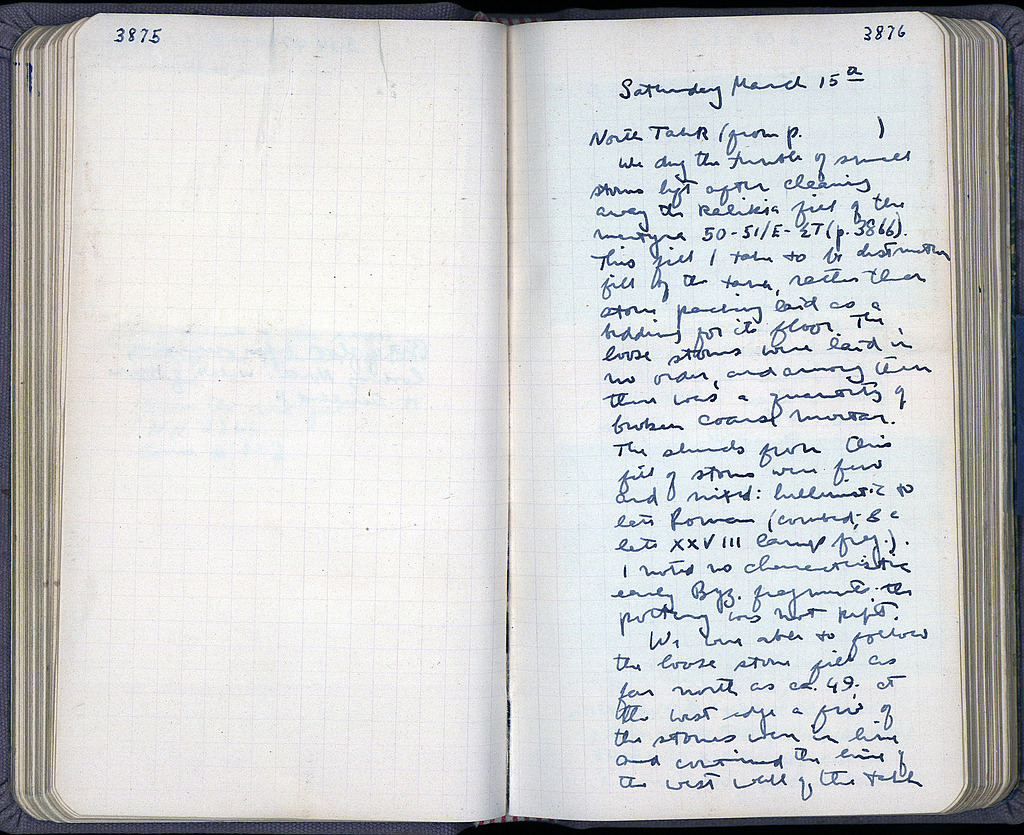 3875
3876
Saturday March 15
North Tank (from p. )
We dug the tumble of small
stones left after cleaning
away the kalikia fill of the
50-51/E-ΣT (p. 3866).
This fill I take to be destruction
fill of the tank, rather than
stone packing laid as a
bedding for its floor. The
loose stones were laid in
no order, and among them
there was a quantity of
broken coarse mortar.
The sherds from this
fill of stones were few
and mixed: hellenistic to
late Roman (combed, &
late XXVIII lamp frag.).
I noted no characteristic
early Byz. fragments. the
pottery was not kept.
We were able to follow
the loose stone fill as
far north as ca. 49. at
the west edge a few of
the stones were in line
and continued the line of
the west wall of the tank